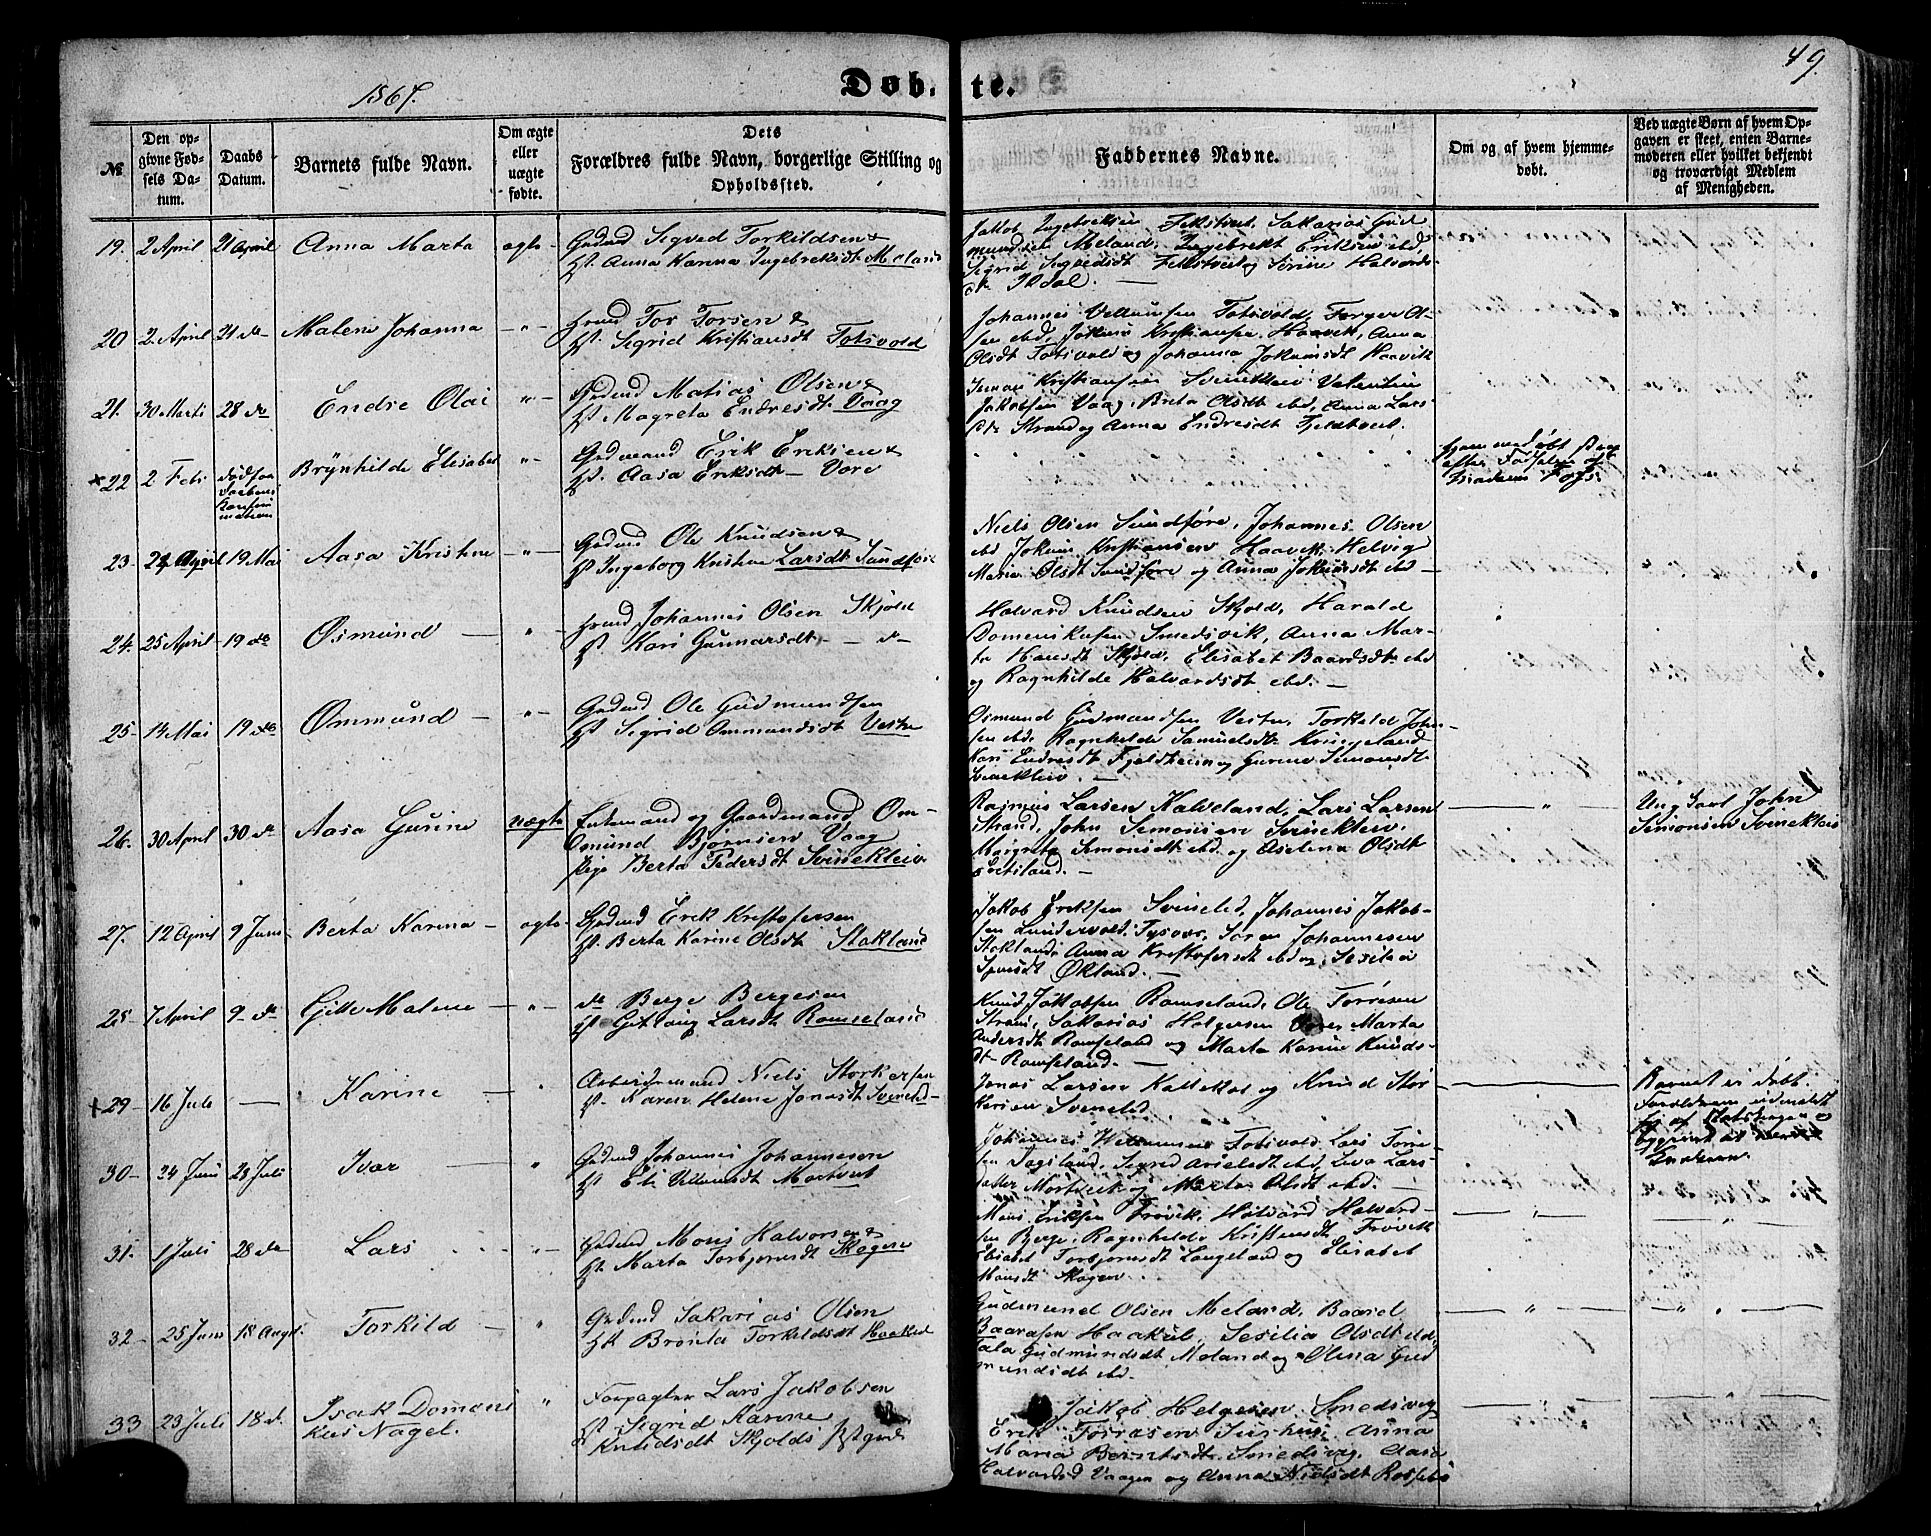 49.
1867.
Døbte.
№
Den opgivne Fødsels Datum.
Daabs Datum.
Barnets fulde Navn.
Om ægte eller uægte fødte.
Dets Forældres fulde Navn, borgerlige Stilling og Opholdssted.
Faddernes Navne.
Om og af hvem hjemmedøbt.
Ved uægte Børn af hvem Opgaven er skeet, enten Barnemoderen eller hvilket bekjendt og troværdigt Medlem af Menigheden.
19. 2 April 21 April Anna Marta ægte Gdmd Sigved Torkildsen &
H. Anna Karina Ingebrektsdt Meland
Jakob Ingebrektsen Sakarias Gud
mundsen Meland, Ingebrekt Eriksen ibd
Sigrid Sigvedsdt og Serine Halvords
dt. Ildal. —
20 2 April 21 do Malene Johanna —"— Tor Torsen &
H. Sigrid Kristiansdt Totsvold
Johannes Villumsen Totsvold, Torger Ol-
sen ibd, Jokum Kristiansen Haavik, Anna
Olsdt Totsvold og Johanna Jokumsdt Haavik
21. 30 Marts 28 do Endre Olai "— Gdmd Matias Olsen &
H. Magreta Endresdt Vaag
Simon Kristiansen Svinekleiv Valentin
Jakobsen Vaag, Brita Olsdt ibd, Anna Lars
dt. Strand og Anna Endresdt
× 22 2 Feb. Brynhilde Elisabet "— Gdmand Erik Eriksen &
H. Aasa Eriksdt — Vore
efter Fødselen af
23 24 April 19 Mai Aasa Kristine —"— Gdmd Ole Knudsen &
H. Ingeborg Kristine Larsdt Sundføre
Niels Olsen Sundføre, Johannes Olsen
ibd Jokum Kristiansen Haavik, Helvig
Marie Olsdt Sundføre og Anna Jokumsdt ibd —
24. 25 April 19 do Osmund — "— Johannes Olsen Skjold
H. Kari Gunnarsdt — do —
Halvard Knudsen Skjold, Harald
Domenikusen Smedsvik, Anna Mar-
ta Hansdt Skjold, Elisabet Baardsdt ibd
og Ragnhilde Halvardsdt ibd. —
25- 14 Mai 19 do Ommund — "— Gdmd Ole Gudmundsen
H. Sigrid Ommundsdt Vestre
Osmund Gudmundsen Vestre, Torkild John-
sen ibd, Ragnhilde Samuelsdt Kringeland
Kari Endresdt og Gurine Simonsdt
Svinekleiv. —
26. 30 April 30 do Aasa Gurine uægte Enkemand og Gaardmand Om-
mund Bjørnsen Vaag
Pige Berta Pedersdt Svinekleiv
Rasmus Larsen Kalveland, Lars Larsen
Strand, John Simonsen Svinekleiv,
Margreta Simonsdt ibd. og Aselena Olsdt
— " —
Ung Karl John
Simonsen Svinekleiv
27. 12 April 9 Juni Berta Karina — ægte Gdmd Erik Kristofersen
H. Berta Karine Olsdt Stakland
Jakob Eriksen Svineld, Johannes Jakob-
sen Lundervold, Tysvær, Søren Johannesen
Stakland, Anna Kristofersdt ibd og Sesilia
Økland. —
28 7 April 9 do Gitle Malene — "— do Berge Bergesen
H. Gitlaug Larsdt Ramseland
Knud Jakobsen Ramseland, Ole Torresen
Strand, Sakarias Holgersen Marta
Andersdt Ramseland og Marta Karine Knuds-
dt Ramseland. —
× 29 16 Juli — Karine — Arbeidsmand Niels Storkersen
H. Karen Helene Jonasdt Svineld —
Jonas Larsen og Knud Stor
kersen Svineld. —
Barnet er døbt.
Forældrene udmeldt
sig af Statskirken og
30 24 Juni 28 Juli Ivar — " Gdmd Johannes Johannesen
H. Eli Villumsdt Mortveit
Johannes Villumsen Totsvold, Lars Torre-
sen Dagsland, ibd, Lars-
datter Mortveit og Marta Olsdt ibd. —
31. 1 Juli 28 do Lars "— Gdmd Mons Halvorsen &
H. Marta Torbjørnsdt Skogen
Mons Eriksen Frøvik, Halvard Halvard-
sen Berge, Ragnhilde Kristensdt Frøvik
Elisabet Torbjørnsdt Langeland og Elisabet
Monsdt Skogen.
32- 25 Juni 18 Augst. Torkild — " Gdmd Sakarias Olsen
H. Bronla Torkildsdt Haakul
Gudmund Olsen Meland, Baard
Baardsen Haakul, Sesilia Olsdt ibd,
Tala Gudmundsdt Meland og Olina Gud
mundsdt ibd.
33 23 Juli 18 d. Isak Domeni
kus Nagel. " Forpagter Lars Jakobsen
H. Sigrid Karine
Knudsdt Skjolds Pstgrd
Jakob Helgesen Smedsvig
Erik Torrasen Anna
Maria Berntsdt Smedsvig,
Halvardsd Vaagen og Anna Nielsdt